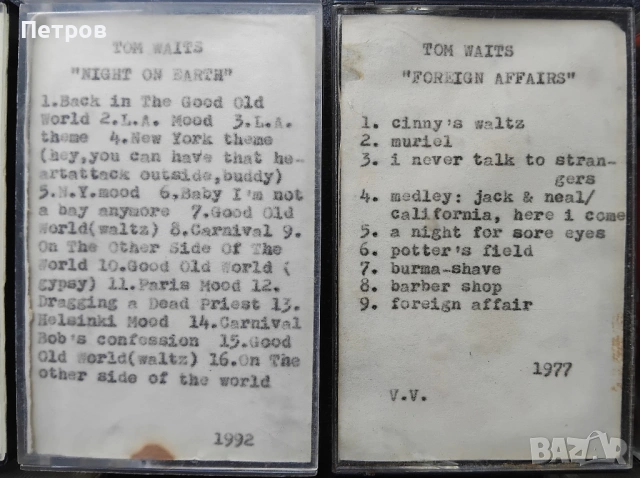 Петров
TOM WAITS
"NIGHT ON EARTH"
1.Back in The Good Old
World 2.L.A. Mood 3.L.A.
theme 4.New York theme
(hey,you can have that he-
artattack outside,buddy)
5.N.Y.mood 6,Baby I'm not
a bay anymore 7.Good Old
World(waltz) 8.Carnival 9.
On The Other Side Of The
World 10.Good Old World (
gypsy) 11.Paris Mood 12.
Dragging a Dead Priest 13.
Helsinki Mood 14.Carnival
Bob's confession 15.Good
Old World(waltz) 16.On The
other side of the world
1992
TOM WAITS
"FOREIGN AFFAIRS"
1. cinny's waltz
2. muriel
3. i never talk to stran-
gers
4. medley: jack & neal/
california, here i come
5. a night for sore eyes
6. potter's field
7. burma-shave
8. barber shop
9. foreign affair
1977
V.V.
BAZAR